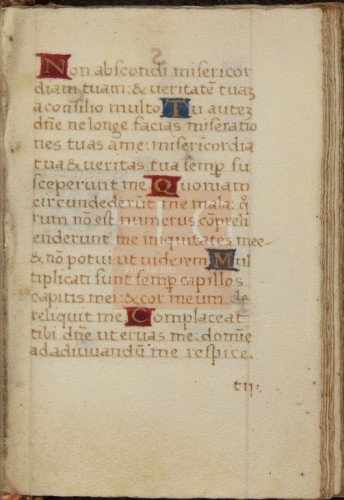 Non abscondi misericor
diam tuam: & veritatē tuaʒ
a consilio multo. Tu auteʒ
dn̄e ne longe facias miseratio
nes tuas a me: misericordia
tua & veritas tua semp̲ su
sceperunt me. Quoniam
circundederunt me mala: q̄
rum nō est numerus cōpreh̄
enderunt me iniquitates mee
& nō potui ut viderem. Mul
tiplicati sunt semp̲ capillos
capitis mei: & cor meum de
reliquit me. Complaceat
tibi dn̄e ut eruas me: domīe
ad adiuvandū me respice.